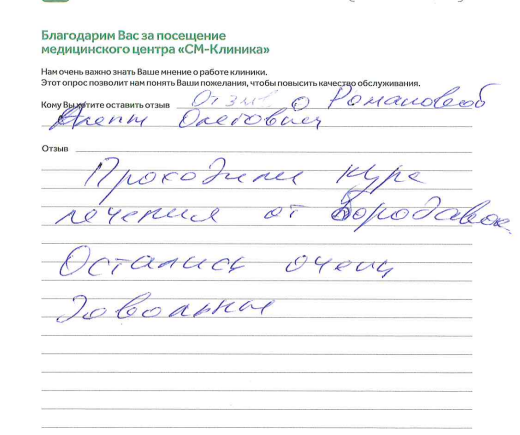 Благодарим Вас за посещение
медицинского центра «СМ-Клиника»
Нам очень важно знать Ваше мнение о работе клиники.
Этот опрос позволит нам понять Ваши пожелания, чтобы повысить качество обслуживания.
Кому Вы хотите оставить отзыв Отзыв о Романовской
Олегович
Отзыв
Проходили курс
лечения от бородавок.
Остались очень
довольны